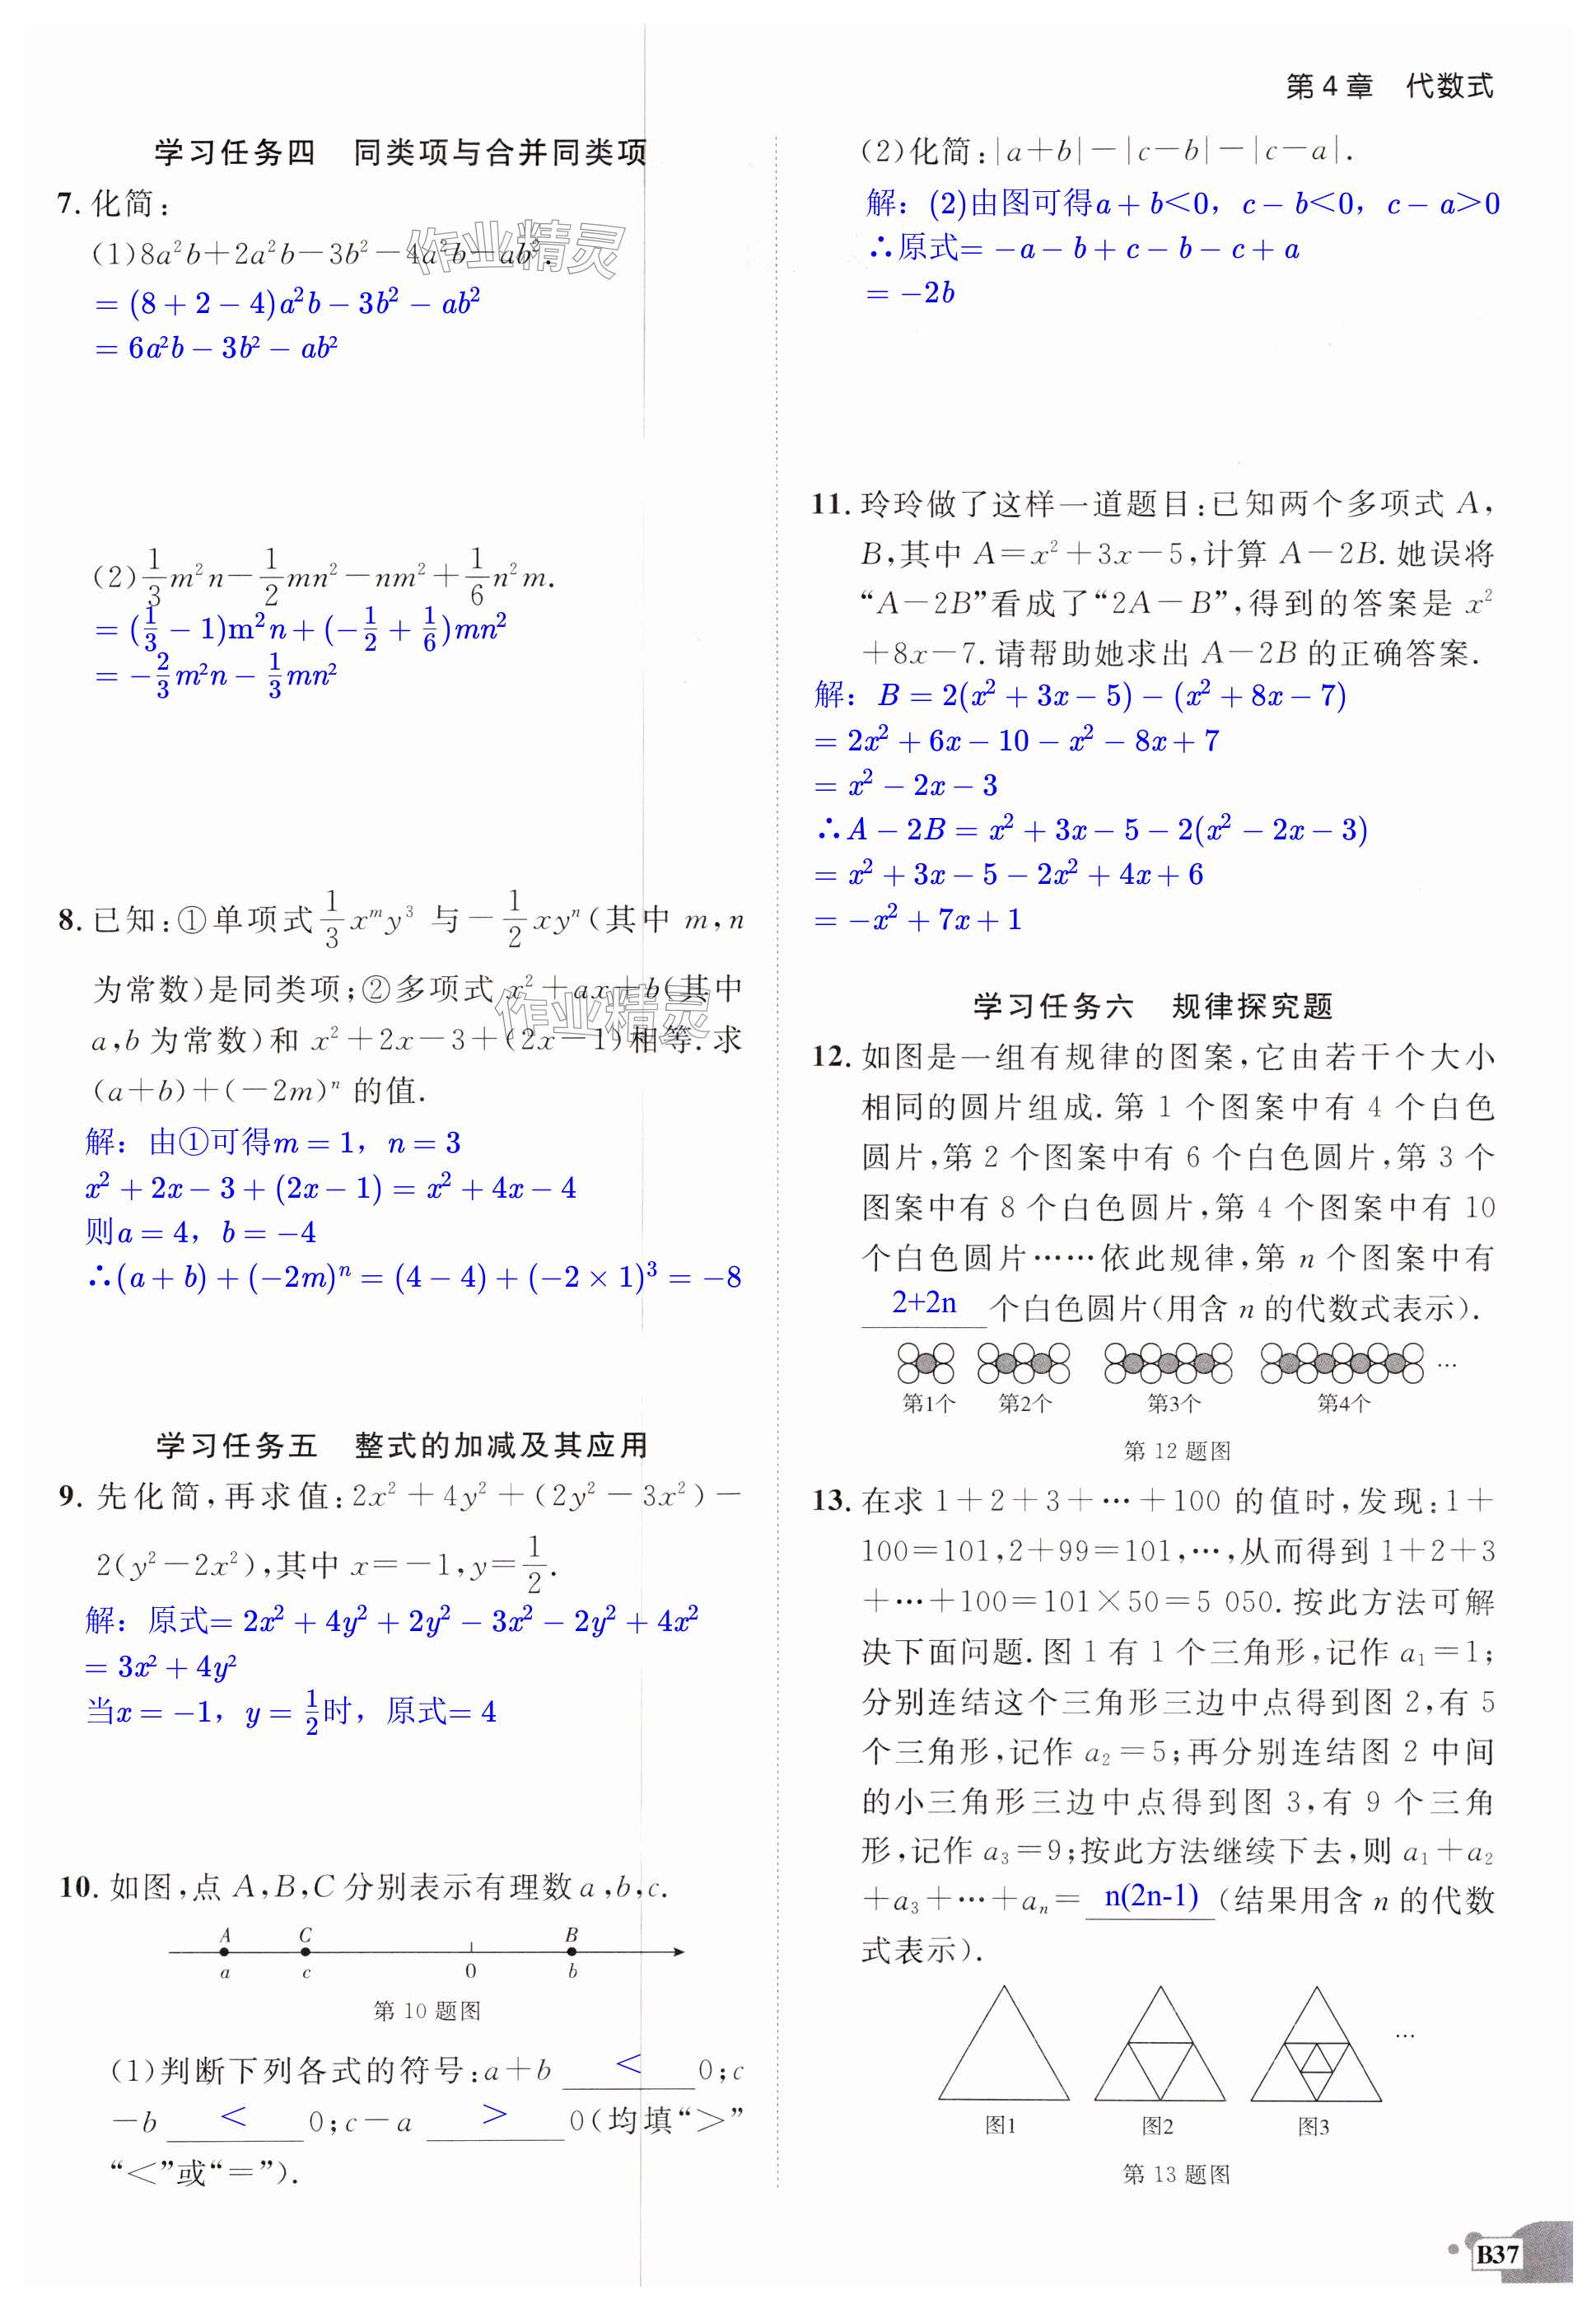 第4章 代数式
学习任务四 同类项与合并同类项
7. 化简:
(1)8a²b+2a²b-3b²-4a²b-ab².
= (8 + 2 - 4)a²b - 3b² - ab²
= 6a²b - 3b² - ab²
(2)1/3 m²n-1/2 mn²-nm²+1/6 n²m.
= (1/3 - 1)m²n + (-1/2 + 1/6)mn²
= -2/3 m²n - 1/3 mn²
8. 已知:①单项式1/3 xᵐy³ 与-1/2 xyⁿ(其中 m,n
为常数)是同类项;②多项式 x²+ax+b(其中
a,b 为常数)和 x²+2x-3+(2x-1)相等.求
(a+b)+(-2m)ⁿ 的值.
解：由①可得m = 1，n = 3
x² + 2x - 3 + (2x - 1) = x² + 4x - 4
则a = 4，b = -4
∴(a + b) + (-2m)ⁿ = (4 - 4) + (-2 × 1)³ = -8
学习任务五 整式的加减及其应用
9. 先化简,再求值:2x²+4y²+(2y²-3x²)-
2(y²-2x²),其中 x=-1,y=1/2.
解：原式= 2x² + 4y² + 2y² - 3x² - 2y² + 4x²
= 3x² + 4y²
当x = -1，y = 1/2时，原式= 4
10. 如图,点 A,B,C 分别表示有理数a,b,c.
A C B
a c 0 b
第 10 题图
(1)判断下列各式的符号:a+b < 0;c
-b < 0;c-a > 0(均填“>”
“<”或“=”).
(2)化简:|a+b|-|c-b|-|c-a|.
解：(2)由图可得a + b<0，c - b<0，c - a>0
∴原式= -a - b + c - b - c + a
= -2b
11. 玲玲做了这样一道题目:已知两个多项式 A,
B,其中 A=x²+3x-5,计算 A-2B.她误将
“A-2B”看成了“2A-B”,得到的答案是 x²
+8x-7.请帮助她求出 A-2B 的正确答案.
解：B = 2(x² + 3x - 5) - (x² + 8x - 7)
= 2x² + 6x - 10 - x² - 8x + 7
= x² - 2x - 3
∴A - 2B = x² + 3x - 5 - 2(x² - 2x - 3)
= x² + 3x - 5 - 2x² + 4x + 6
= -x² + 7x + 1
学习任务六 规律探究题
12. 如图是一组有规律的图案,它由若干个大小
相同的圆片组成.第 1 个图案中有 4 个白色
圆片,第 2 个图案中有 6 个白色圆片,第 3 个
图案中有 8 个白色圆片,第 4 个图案中有 10
个白色圆片……依此规律,第 n 个图案中有
2+2n 个白色圆片(用含 n 的代数式表示).
…
第1个 第2个 第3个 第4个
第 12 题图
13. 在求 1+2+3+…+100 的值时,发现:1+
100=101,2+99=101,…,从而得到 1+2+3
+…+100=101×50=5 050.按此方法可解
决下面问题.图 1 有 1 个三角形,记作 a₁=1;
分别连结这个三角形三边中点得到图 2,有 5
个三角形,记作 a₂=5;再分别连结图 2 中间
的小三角形三边中点得到图 3,有 9 个三角
形,记作 a₃=9;按此方法继续下去,则 a₁+a₂
+a₃+…+aₙ= n(2n-1) (结果用含 n 的代数
式表示).
…
图1 图2 图3
第 13 题图
B37
作业精灵
作业精灵